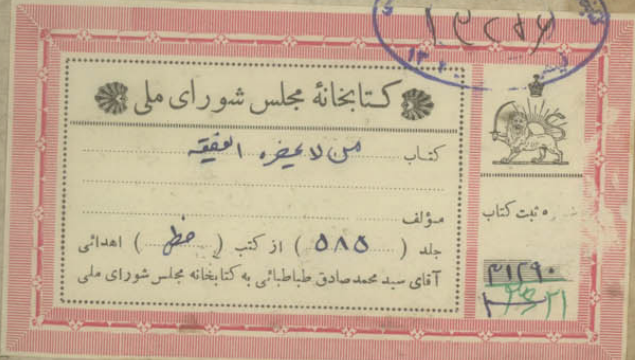 ۱۳۲۵۶
کتابخانهٔ مجلس شورای ملی
کتاب من لا یحضره الفقیه
مؤلف
جلد (۵۸۵) از کتب (خطی) اهدائی
آقای سید محمدصادق طباطبائی به کتابخانه مجلس شورای ملی
شماره ثبت کتاب
۲۱۲۹۰